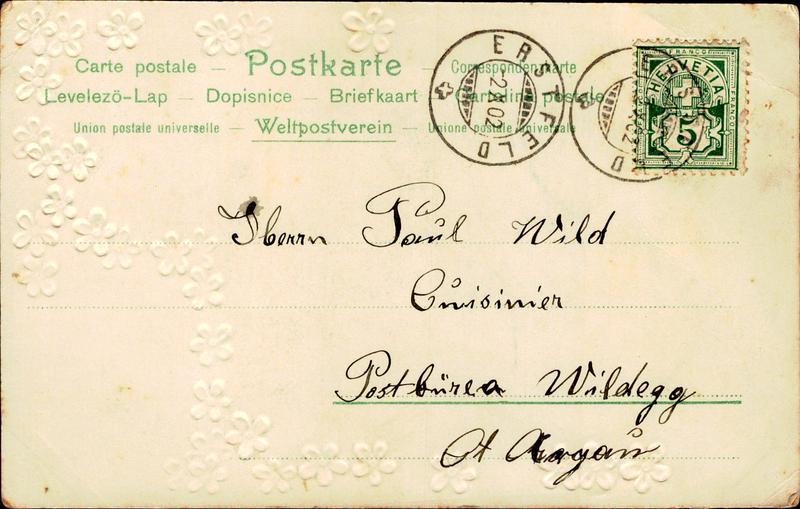 Carte postale — Postkarte — Correspondenzkarte
Levelezö-Lap — Dopisnice — Briefkaart — Cartolina postale
Union postale universelle — Weltpostverein — Unione postale universale
ERSTFELD
-2.X.02
FRANCO
HELVETIA
FRANCO
5
Herrn Paul Wild
Cuisinier
Postbürea Wildegg
Ct Argau